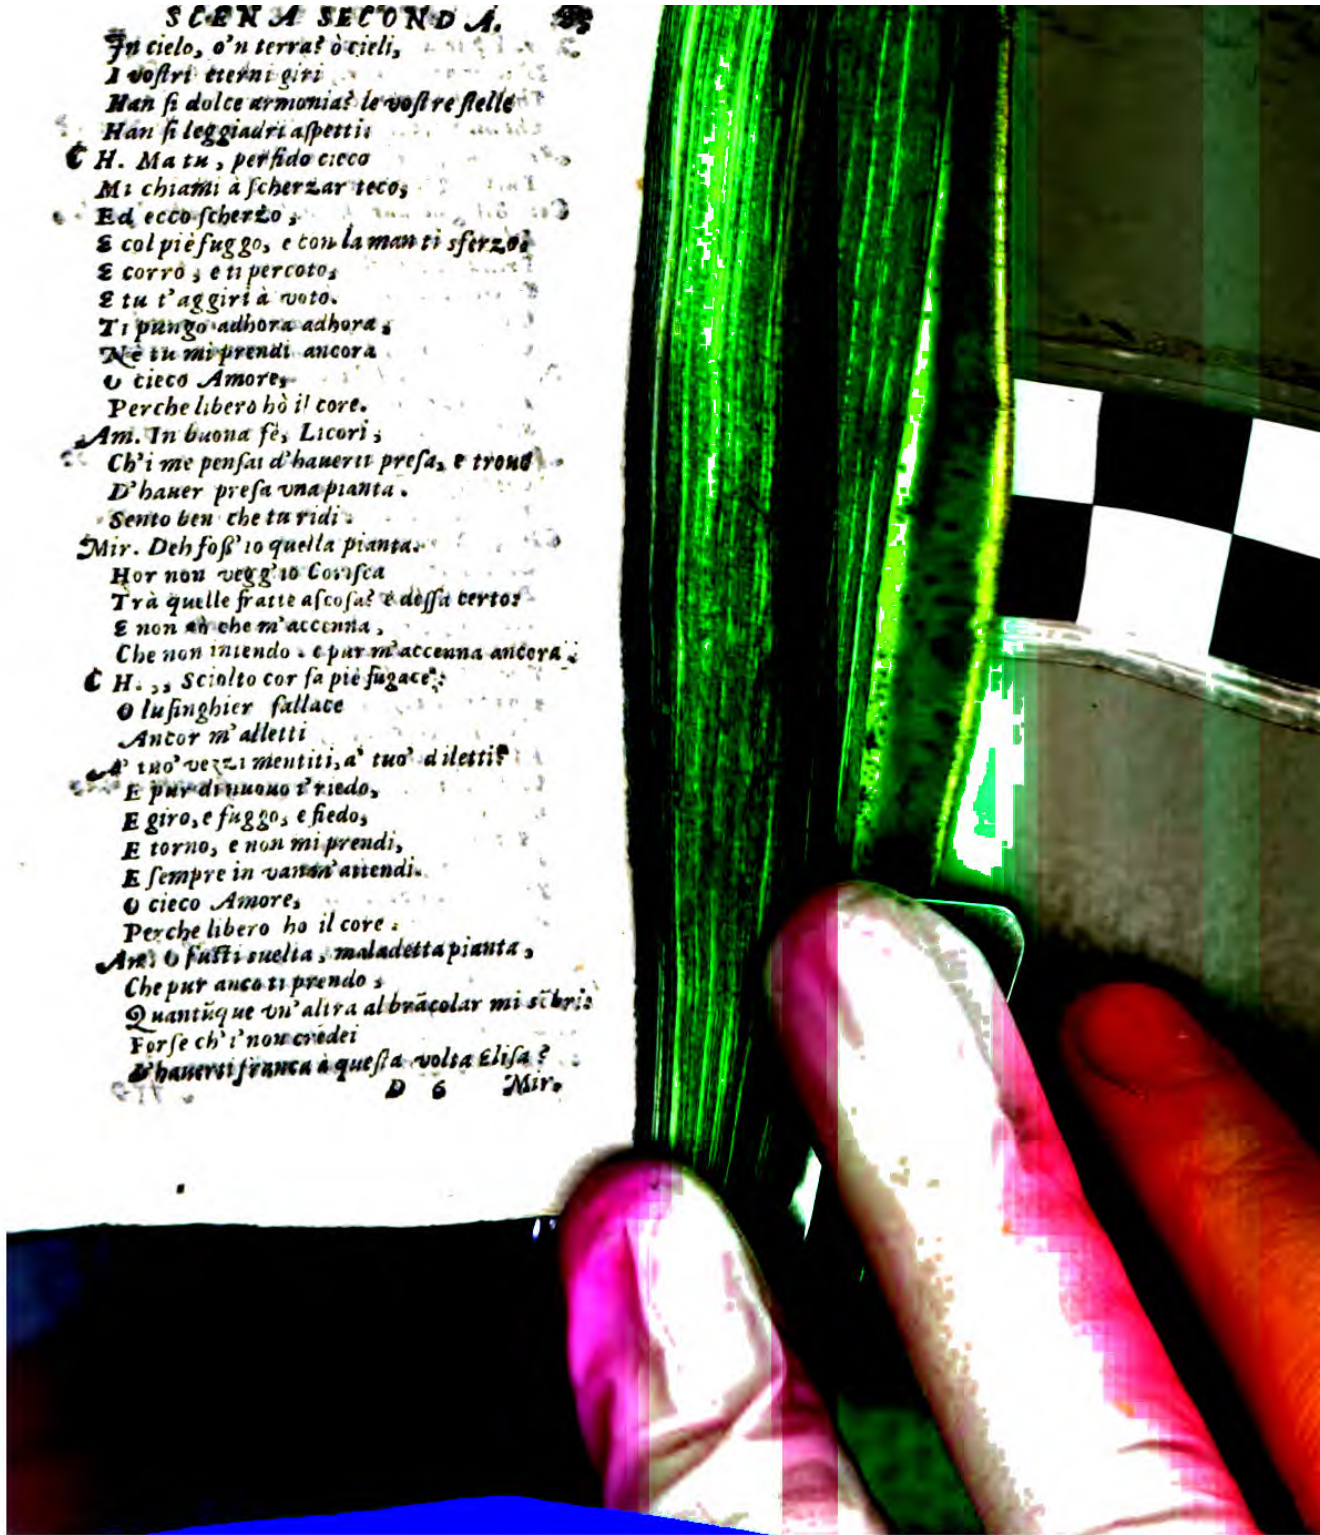 SCENA SECONDA.
In cielo, o'n terra? ò cieli,
I vostri eterni giri
Han si dolce armonia? le vostre stelle
Han si leggiadri aspetti?
C H. Ma tu, perfido cieco
Mi chiami à scherzar teco,
Ed ecco scherzo,
E col piè fuggo, e con la man ti sferzo?
E corro, e ti percoto,
E tu t'aggiri à voto.
Ti pungo adhora adhora,
Nè tu mi prendi ancora
O cieco Amore,
Perche libero hò il core.
Am. In buona fè, Licori,
Ch'i me pensai d'hauerti presa, e trouo
D'hauer presa vna pianta.
Sento ben che tu ridi.
Mir. Deh foss'io quella pianta.
Hor non vegg'io Corisca
Trà quelle fratte ascosa? è dessa certo:
E non che m'accenna,
Che non intendo. e pur m'accenna ancora.
C H. ,, Sciolto cor fa piè fugace:
O lusinghier fallace
Ancor m'alletti
A' tuo' vezzi mentiti, a' tuo' diletti?
E pur di nuouo i' riedo,
E giro, e fuggo, e fiedo,
E torno, e non mi prendi,
E sempre in van m'attendi.
O cieco Amore,
Perche libero ho il core.
Am. O fusti suelta, maladetta pianta,
Che pur anco ti prendo,
Quantũque vn'altra al brãcolar mi sẽbri:
Forse ch'i' non credei
D'hauerti franca à questa volta Elisa?
D 6 Mir.